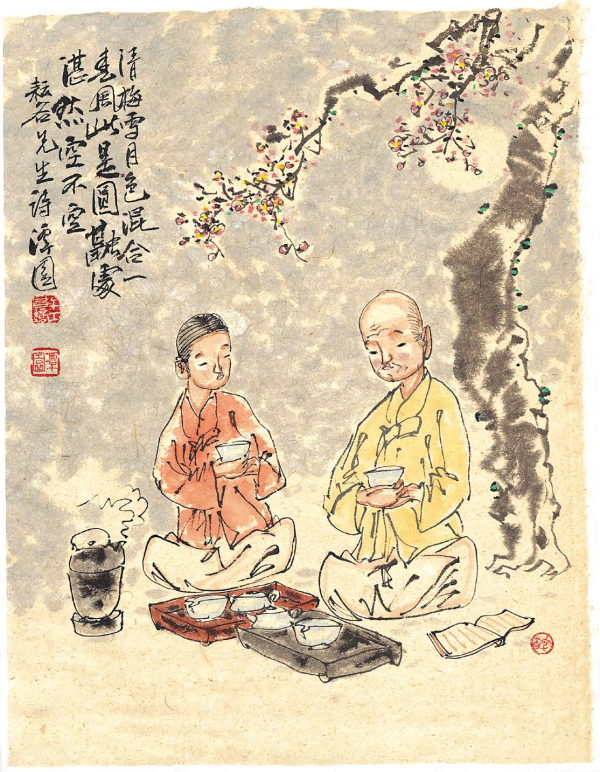 清梅雪月色混合一
壺間此是圓融處
湛然空不空
耘谷先生詩潭園